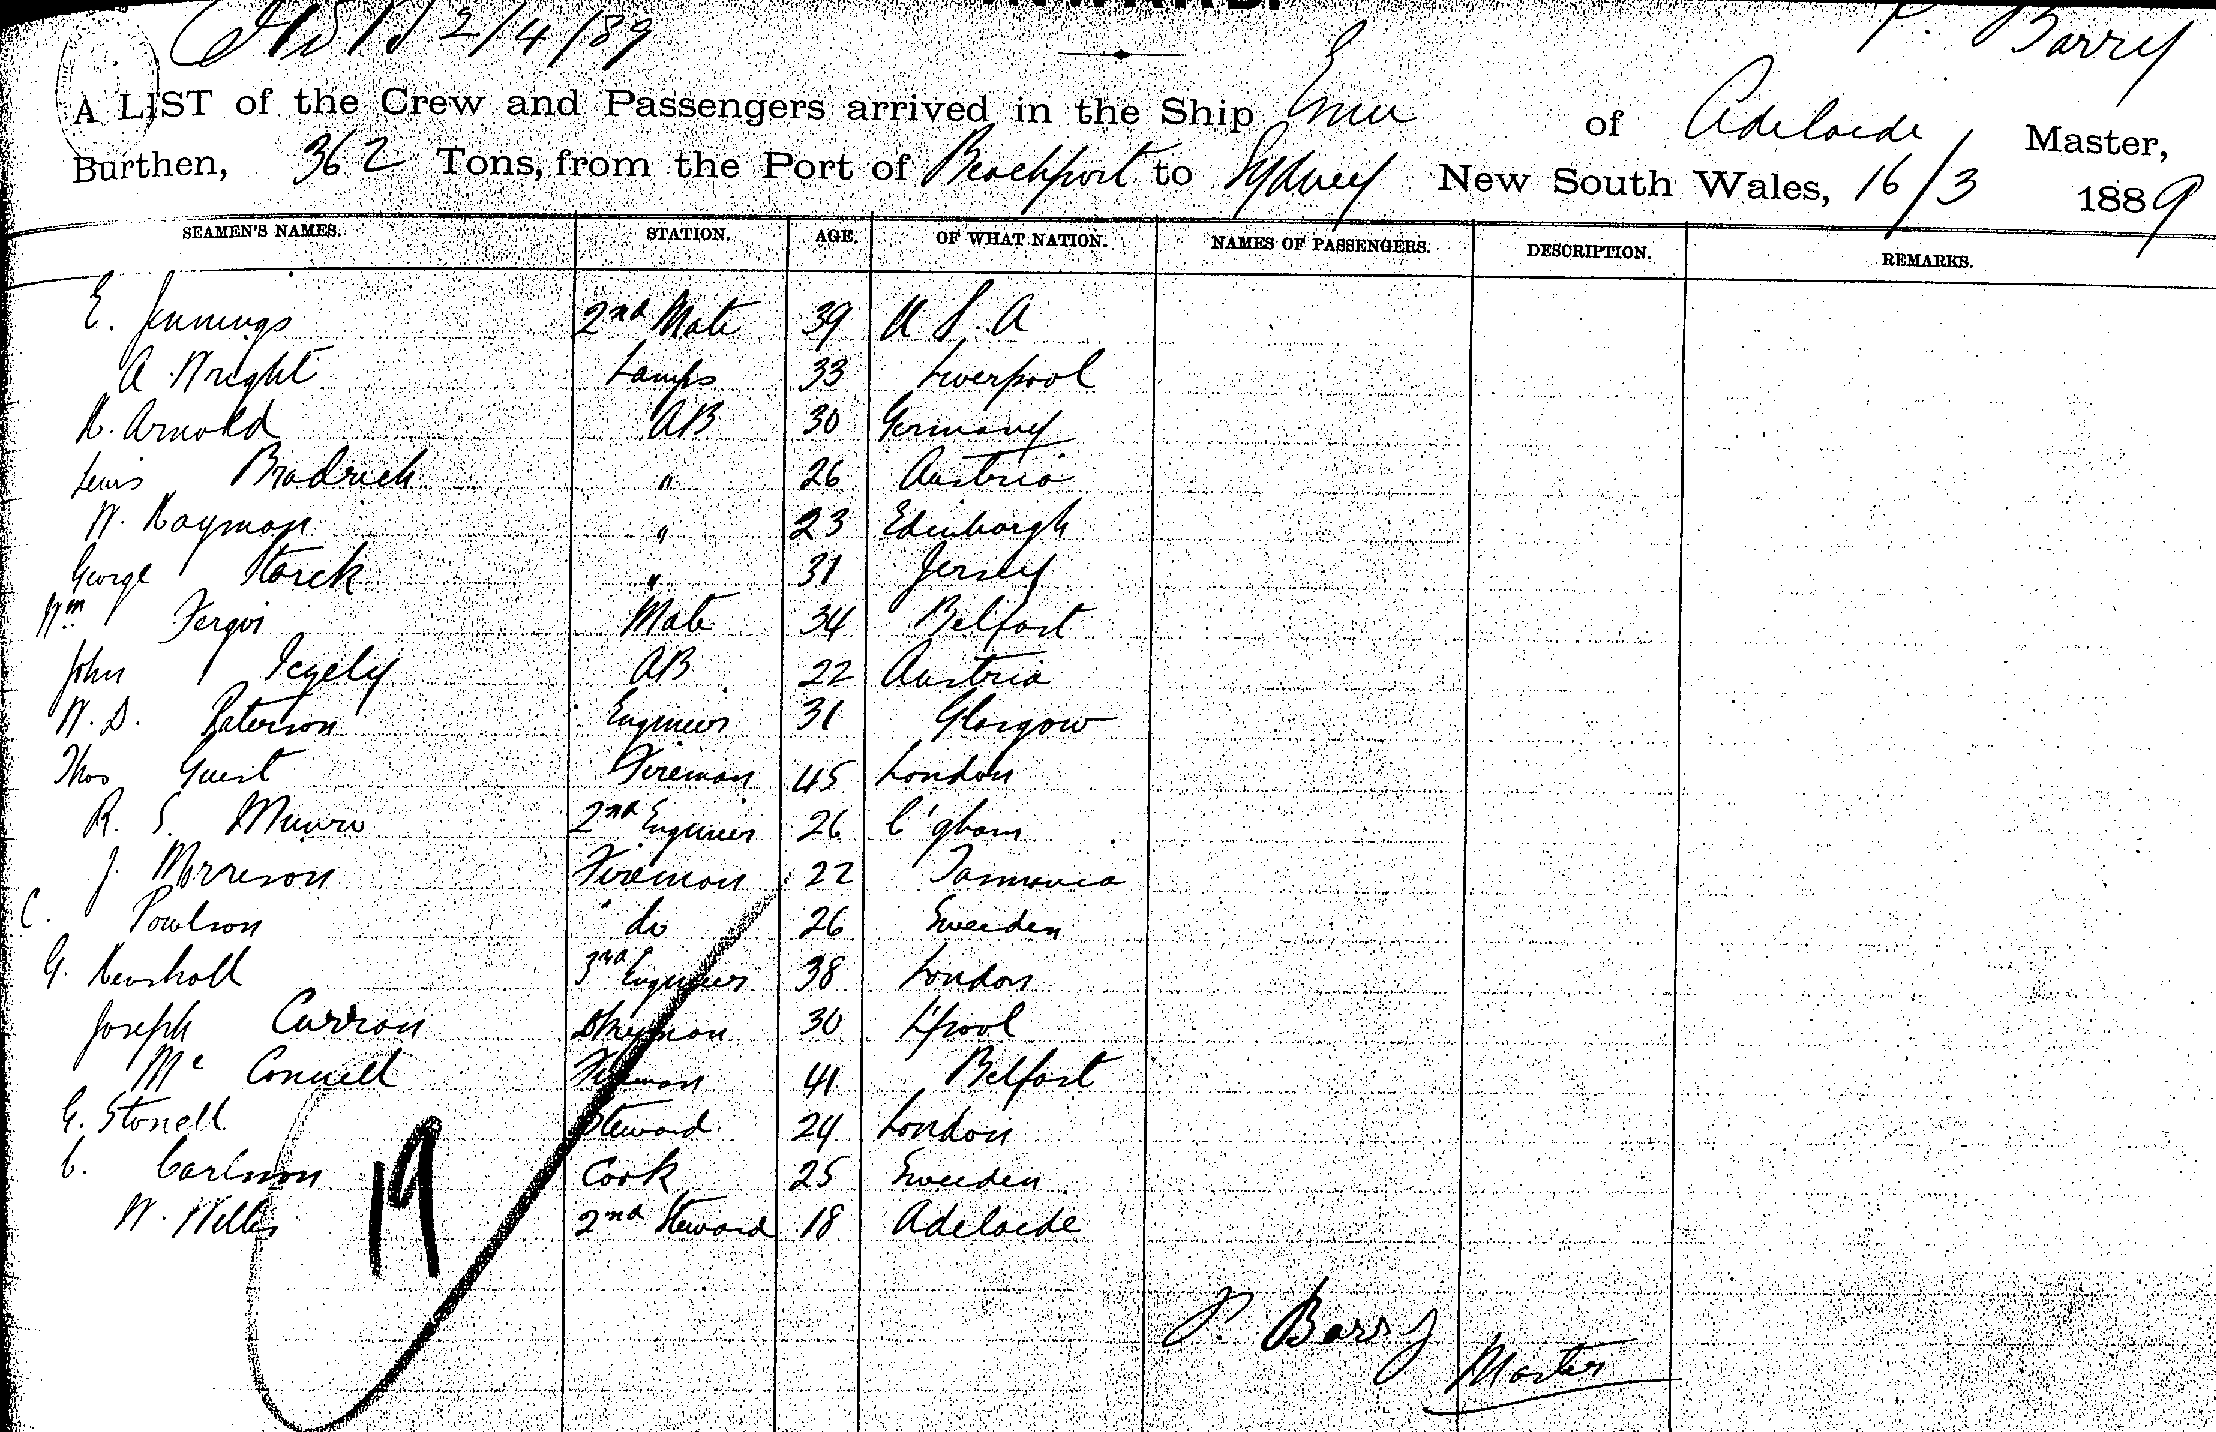 2/4/89
P. Barry
A LIST of the Crew and Passengers arrived in the Ship Emu of Adelaide Master,
Burthen, 362 Tons, from the Port of Beachport to Sydney New South Wales, 16/3 1889
SEAMEN'S NAMES. STATION. AGE. OF WHAT NATION. NAMES OF PASSENGERS. DESCRIPTION. REMARKS.
E. Jennings 2nd Mate 39 U S. A
A Wright Lamps 33 Liverpool
H. Arnold AB 30 Germany
Lewis Brodrick " 26 Austria
W. Haymon " 23 Edinborgh
George Storck " 31 Jersey
Wm Fergoi Mate 34 Belfast
John AB 22 Austria
W. D. Paterson Engineer 31 Glasgow
Thos Guest Fireman 45 London
R. S. Munro 2nd Engineer 26 B'gham
J. Morrison Fireman 22 Tasmania
C. Poulson do 26 Sweeden
G. 3rd Engineer 38 London
Joseph Curran 30 L'pool
Mc Connell Fireman 41 Belfast
G. Stonell Steward 24 London
C. Carlson Cook 25 Sweeden
W. Willis 2nd Steward 18 Adelaide
19
P. Barry
Master